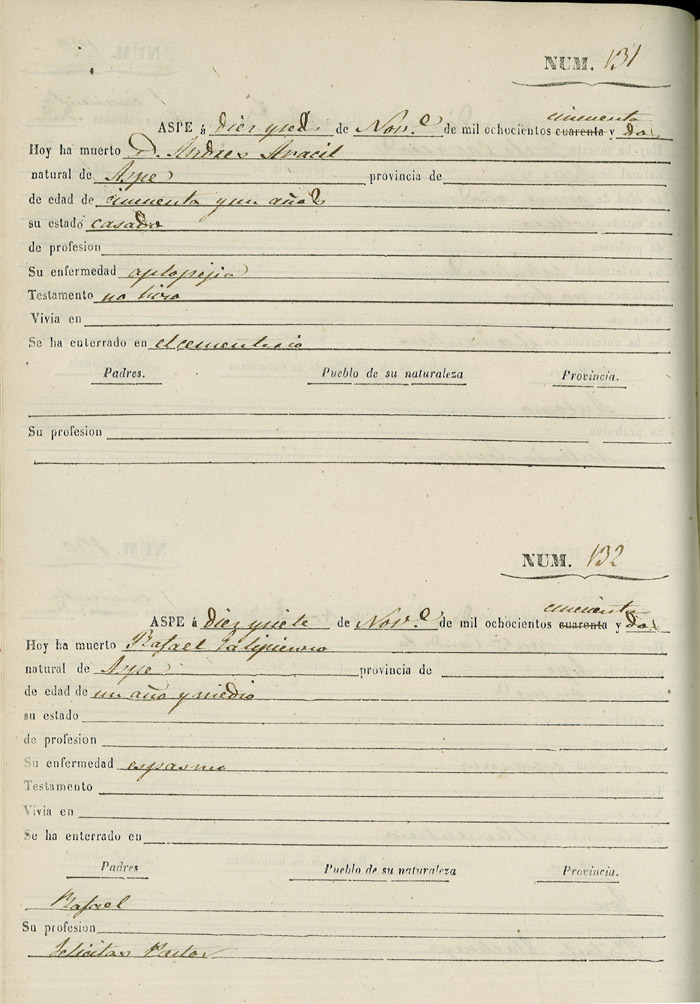 NUM. 131
cincuenta
ASPE á diez y siete de Nov.e de mil ochocientos cuarenta y dos
Hoy ha muerto D. Andres Aracil
natural de Aspe provincia de
de edad de cincuenta y un años
su estado casado
de profesion
Su enfermedad
Testamento no hizo
Vivia en
Se ha enterrado en el cementerio
Padres. Pueblo de su naturaleza Provincia.
Su profesion
NUM. 132
cincuenta
ASPE á diez y siete de Nov.e de mil ochocientos cuarenta y dos
Hoy ha muerto Rafael
natural de Aspe provincia de
de edad de un año y medio
su estado
de profesion
Su enfermedad espasmo
Testamento
Vivia en
Se ha enterrado en
Padres Pueblo de su naturaleza Provincia.
Rafael
Su profesion
Felicitas Pastor